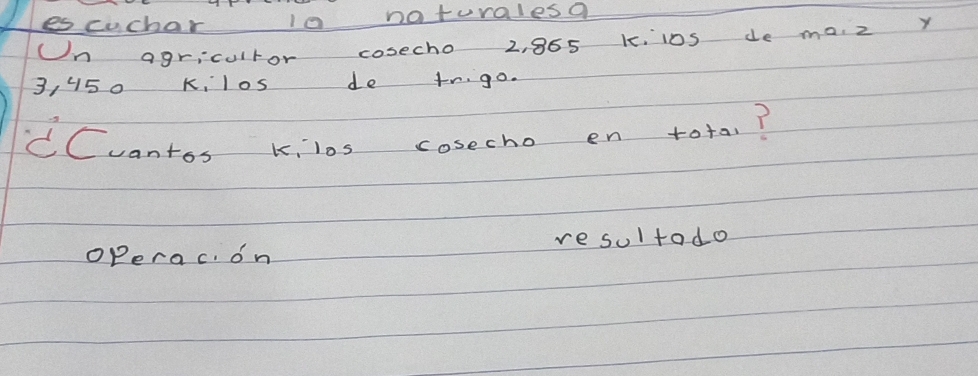 escuchar la naturalesa
Un agricultor cosecho 2,865 kilos de maiz y
3,450 kilos de trigo.
¿Cuantos kilos cosecho en total?
operación resultado